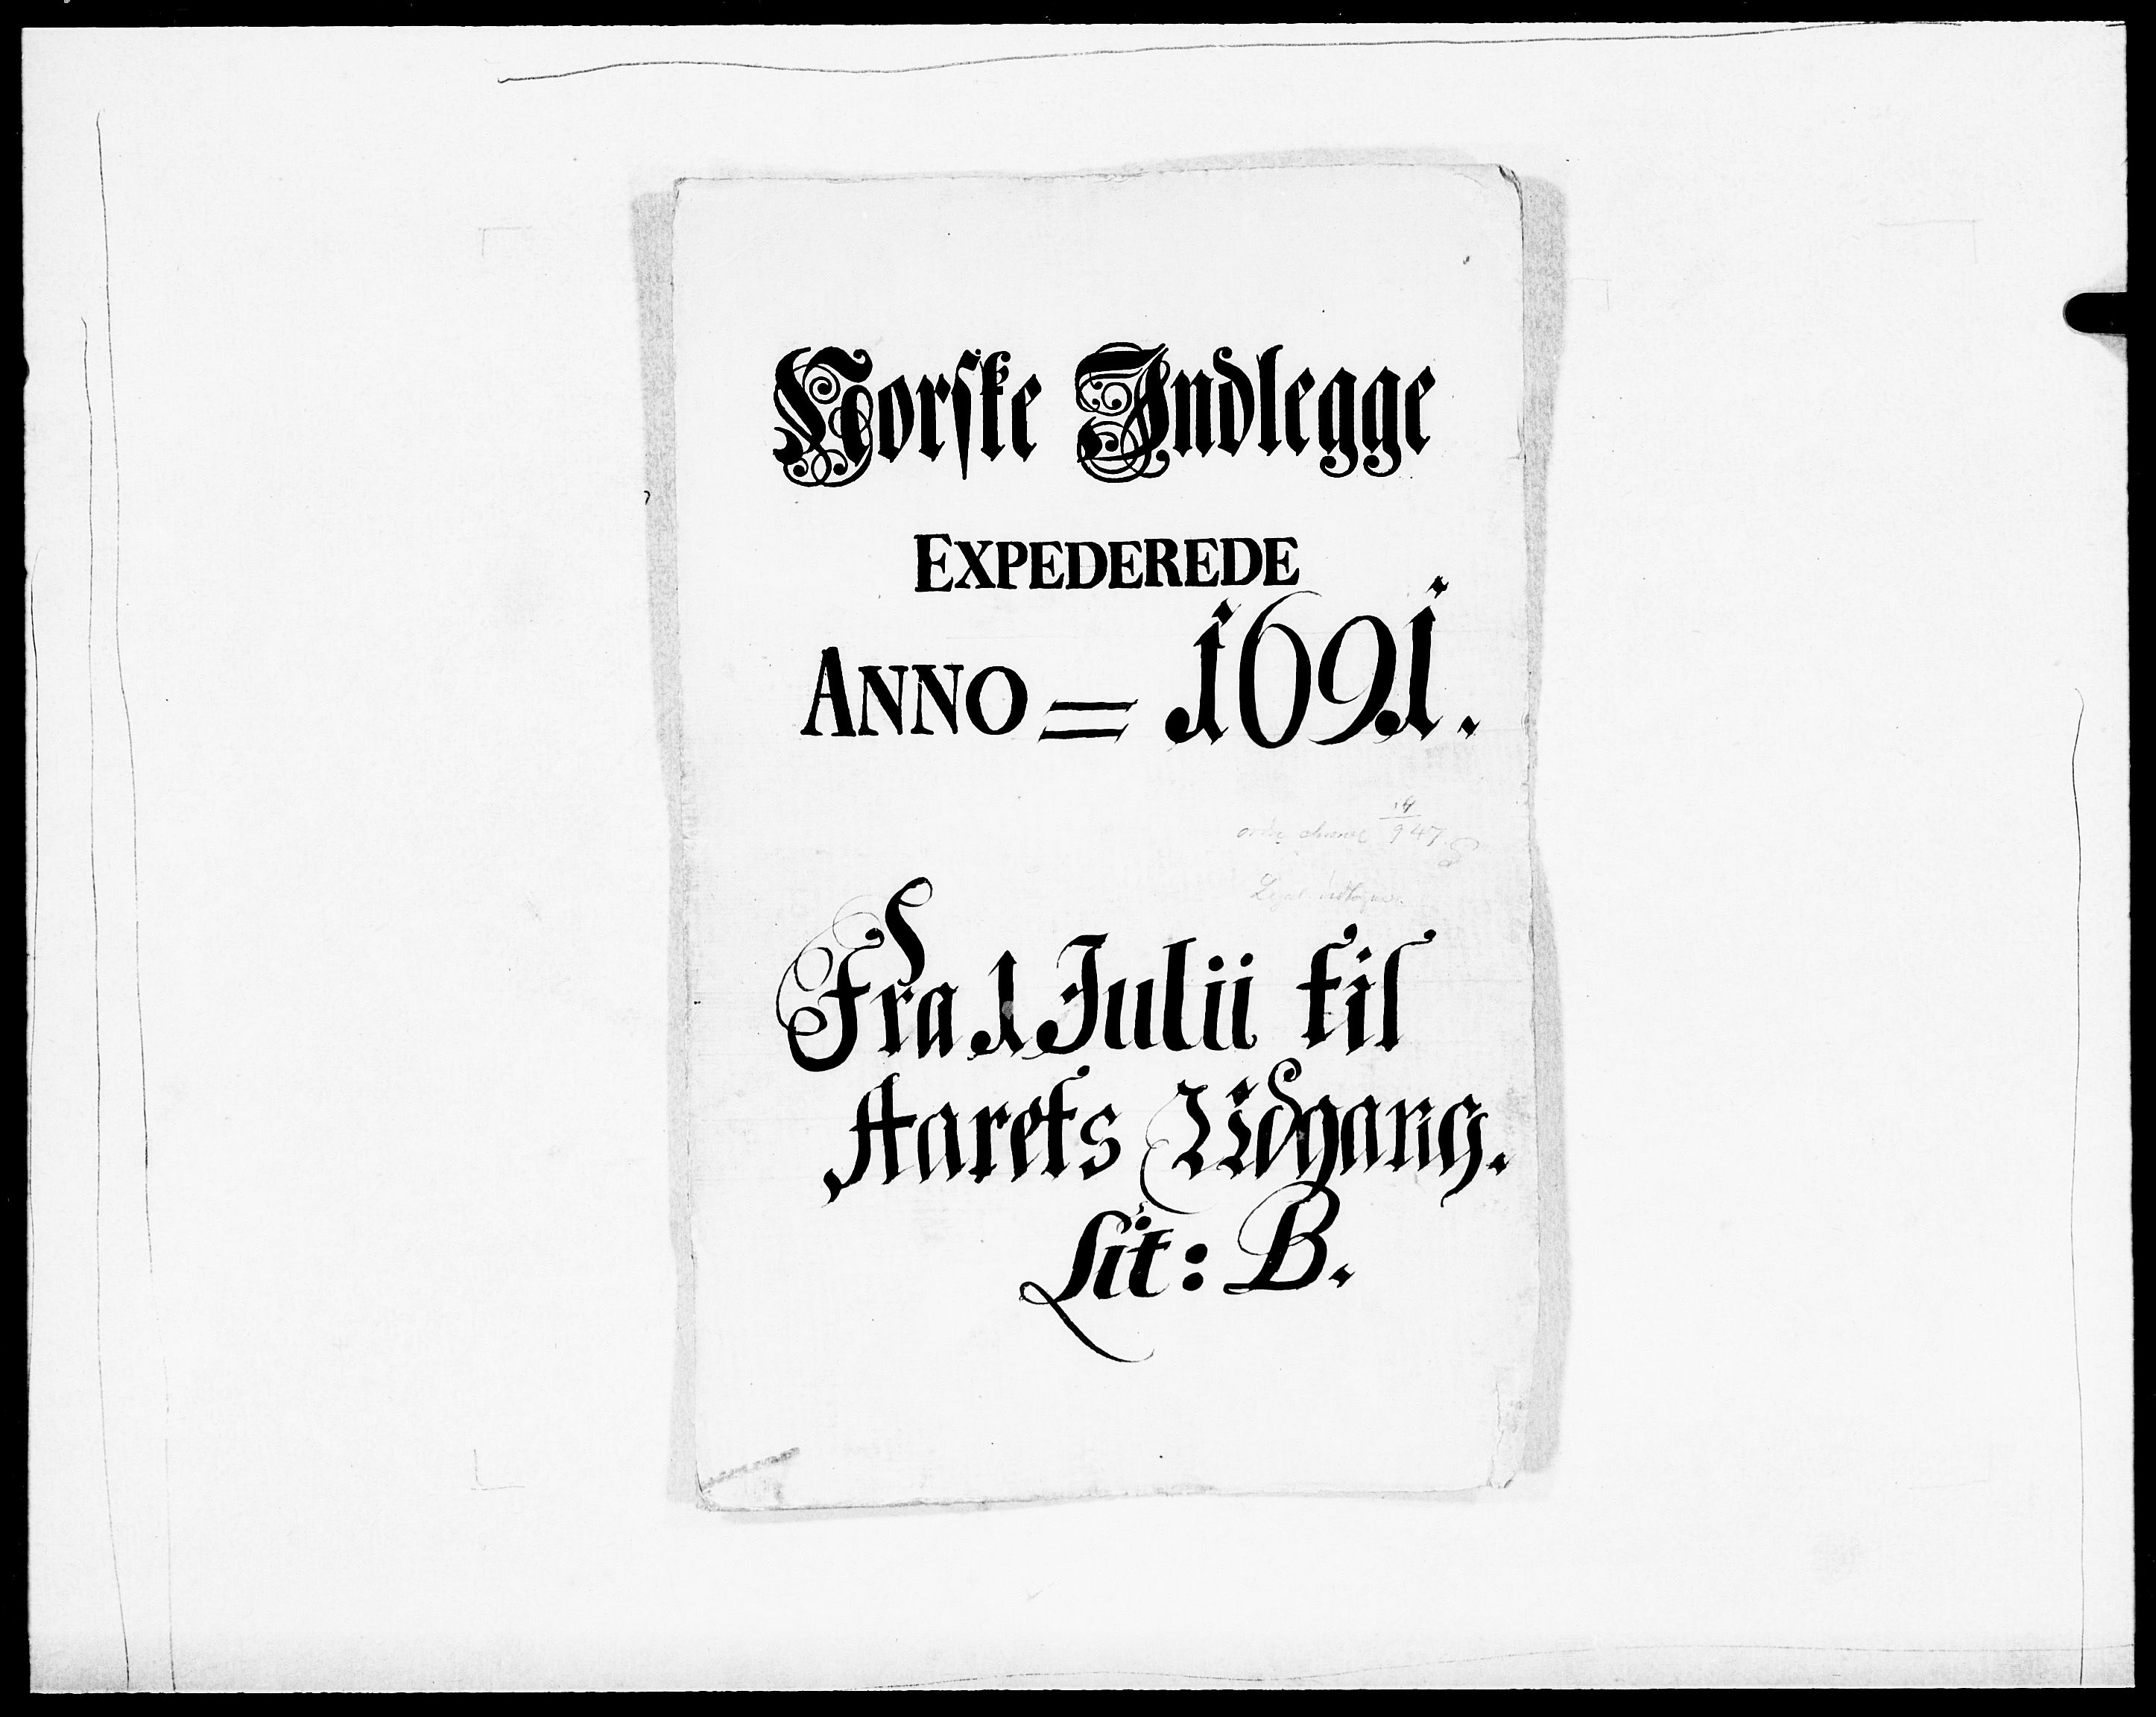 Norske Indlegge
EXPEDEREDE
ANNO = 1691.
947
Fra 1 Julii til
Aarets Udgang.
Lit: B.